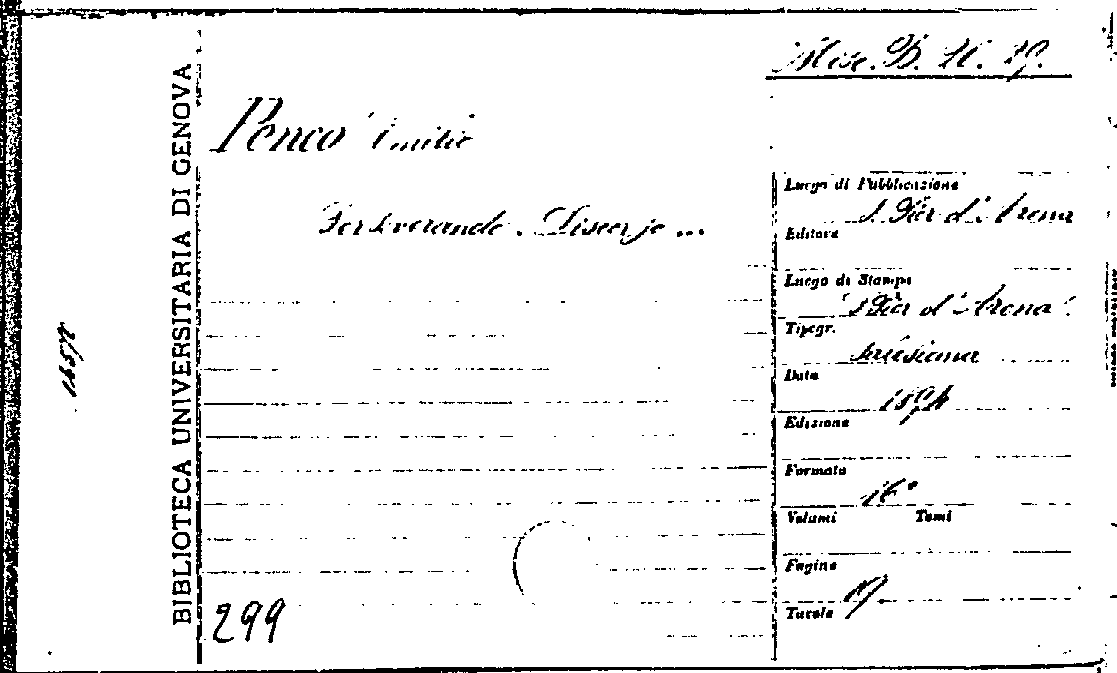 Misc. B. 11. 29.
BIBLIOTECA UNIVERSITARIA DI GENOVA
Penco Emilio
Perseverando. Discorso ...
Luogo di Pubblicazione
S. Pier d'Arena
Editore
Luogo di Stampa
S. Pier d'Arena
Tipogr.
Data
Edizione
Formato
16°
Volumi Tomi
Pagine
Tavole
299